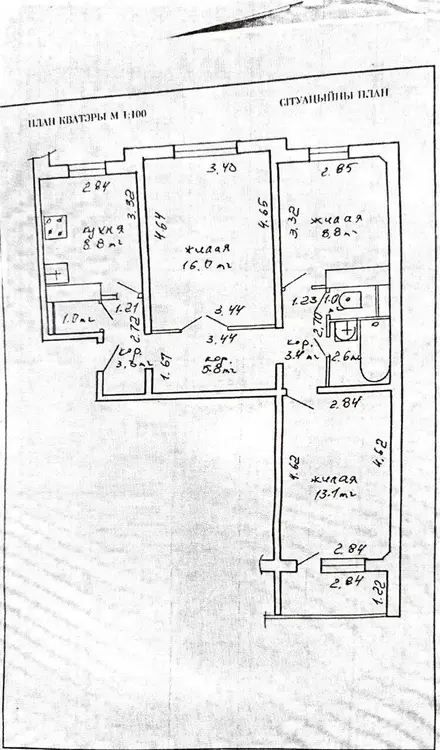 ПЛАН КВАТЭРЫ М 1:100
СІТУАЦЫЙНЫ ПЛАН
2.84
3.40
2.85
3.32
4.64
4.65
3.32
кухня
8.8 м²
жилая
16.0 м²
жилая
8,8 м²
1.21
1.23
1.0
1.0 м²
3.44
2.72
2.70
3.44
кор.
3,3 м²
1.67
кор.
5.8 м²
кор.
3.4 м²
2.6 м²
2.84
4.62
4.62
жилая
13.1 м²
2.84
2.84
1.22